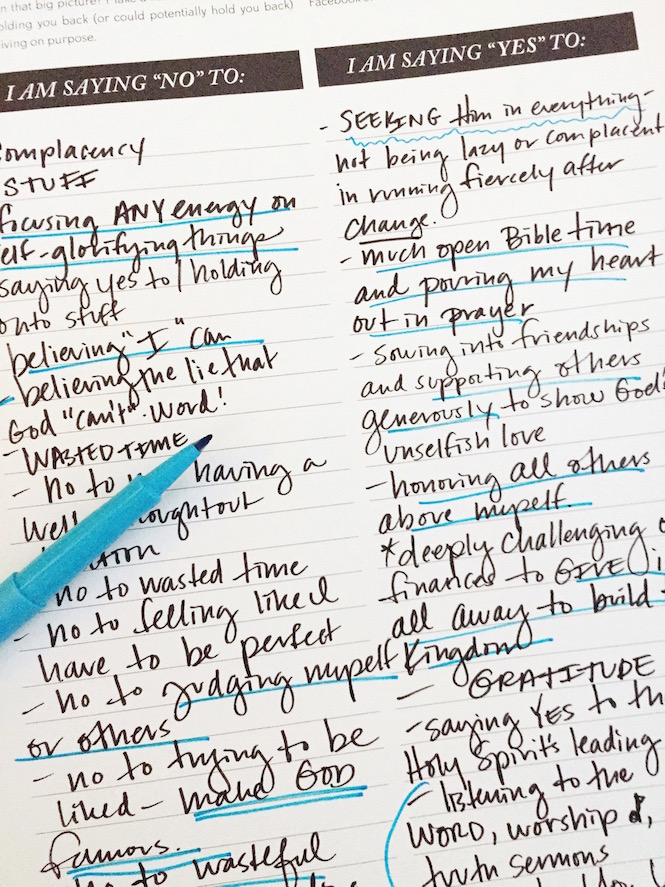 n that big picture?
olding you back (or could potentially hold you back)
iving on purpose.
I AM SAYING "NO" TO:
omplacency
STUFF
focusing ANY energy on
elf-glorifying things
saying yes to / holding
onto stuff
believing "I" can
believing the lie that
God "can't". Word!
- WASTED TIME
- no to having a
well oughtout
- no to wasted time
- no to felling like I
have to be perfect
- no to judging myself
or others
- no to trying to be
liked - make GOD
famous.
no to wasteful
I AM SAYING "YES" TO:
- SEEKING Him in everything -
not being lazy or complacent
in running fiercely after
change.
- much open Bible time
and pouring my heart
out in prayer
- Sowing into friendships
and supporting others
generously to show God's
unselfish love
- honoring all others
above myself.
*deeply challenging
finances to GIVE i
all away to build
Kingdom
- GRATITUDE
- saying YES to th
Holy Spirit's leading
- listening to the
WORD, worship &,
truth sermons